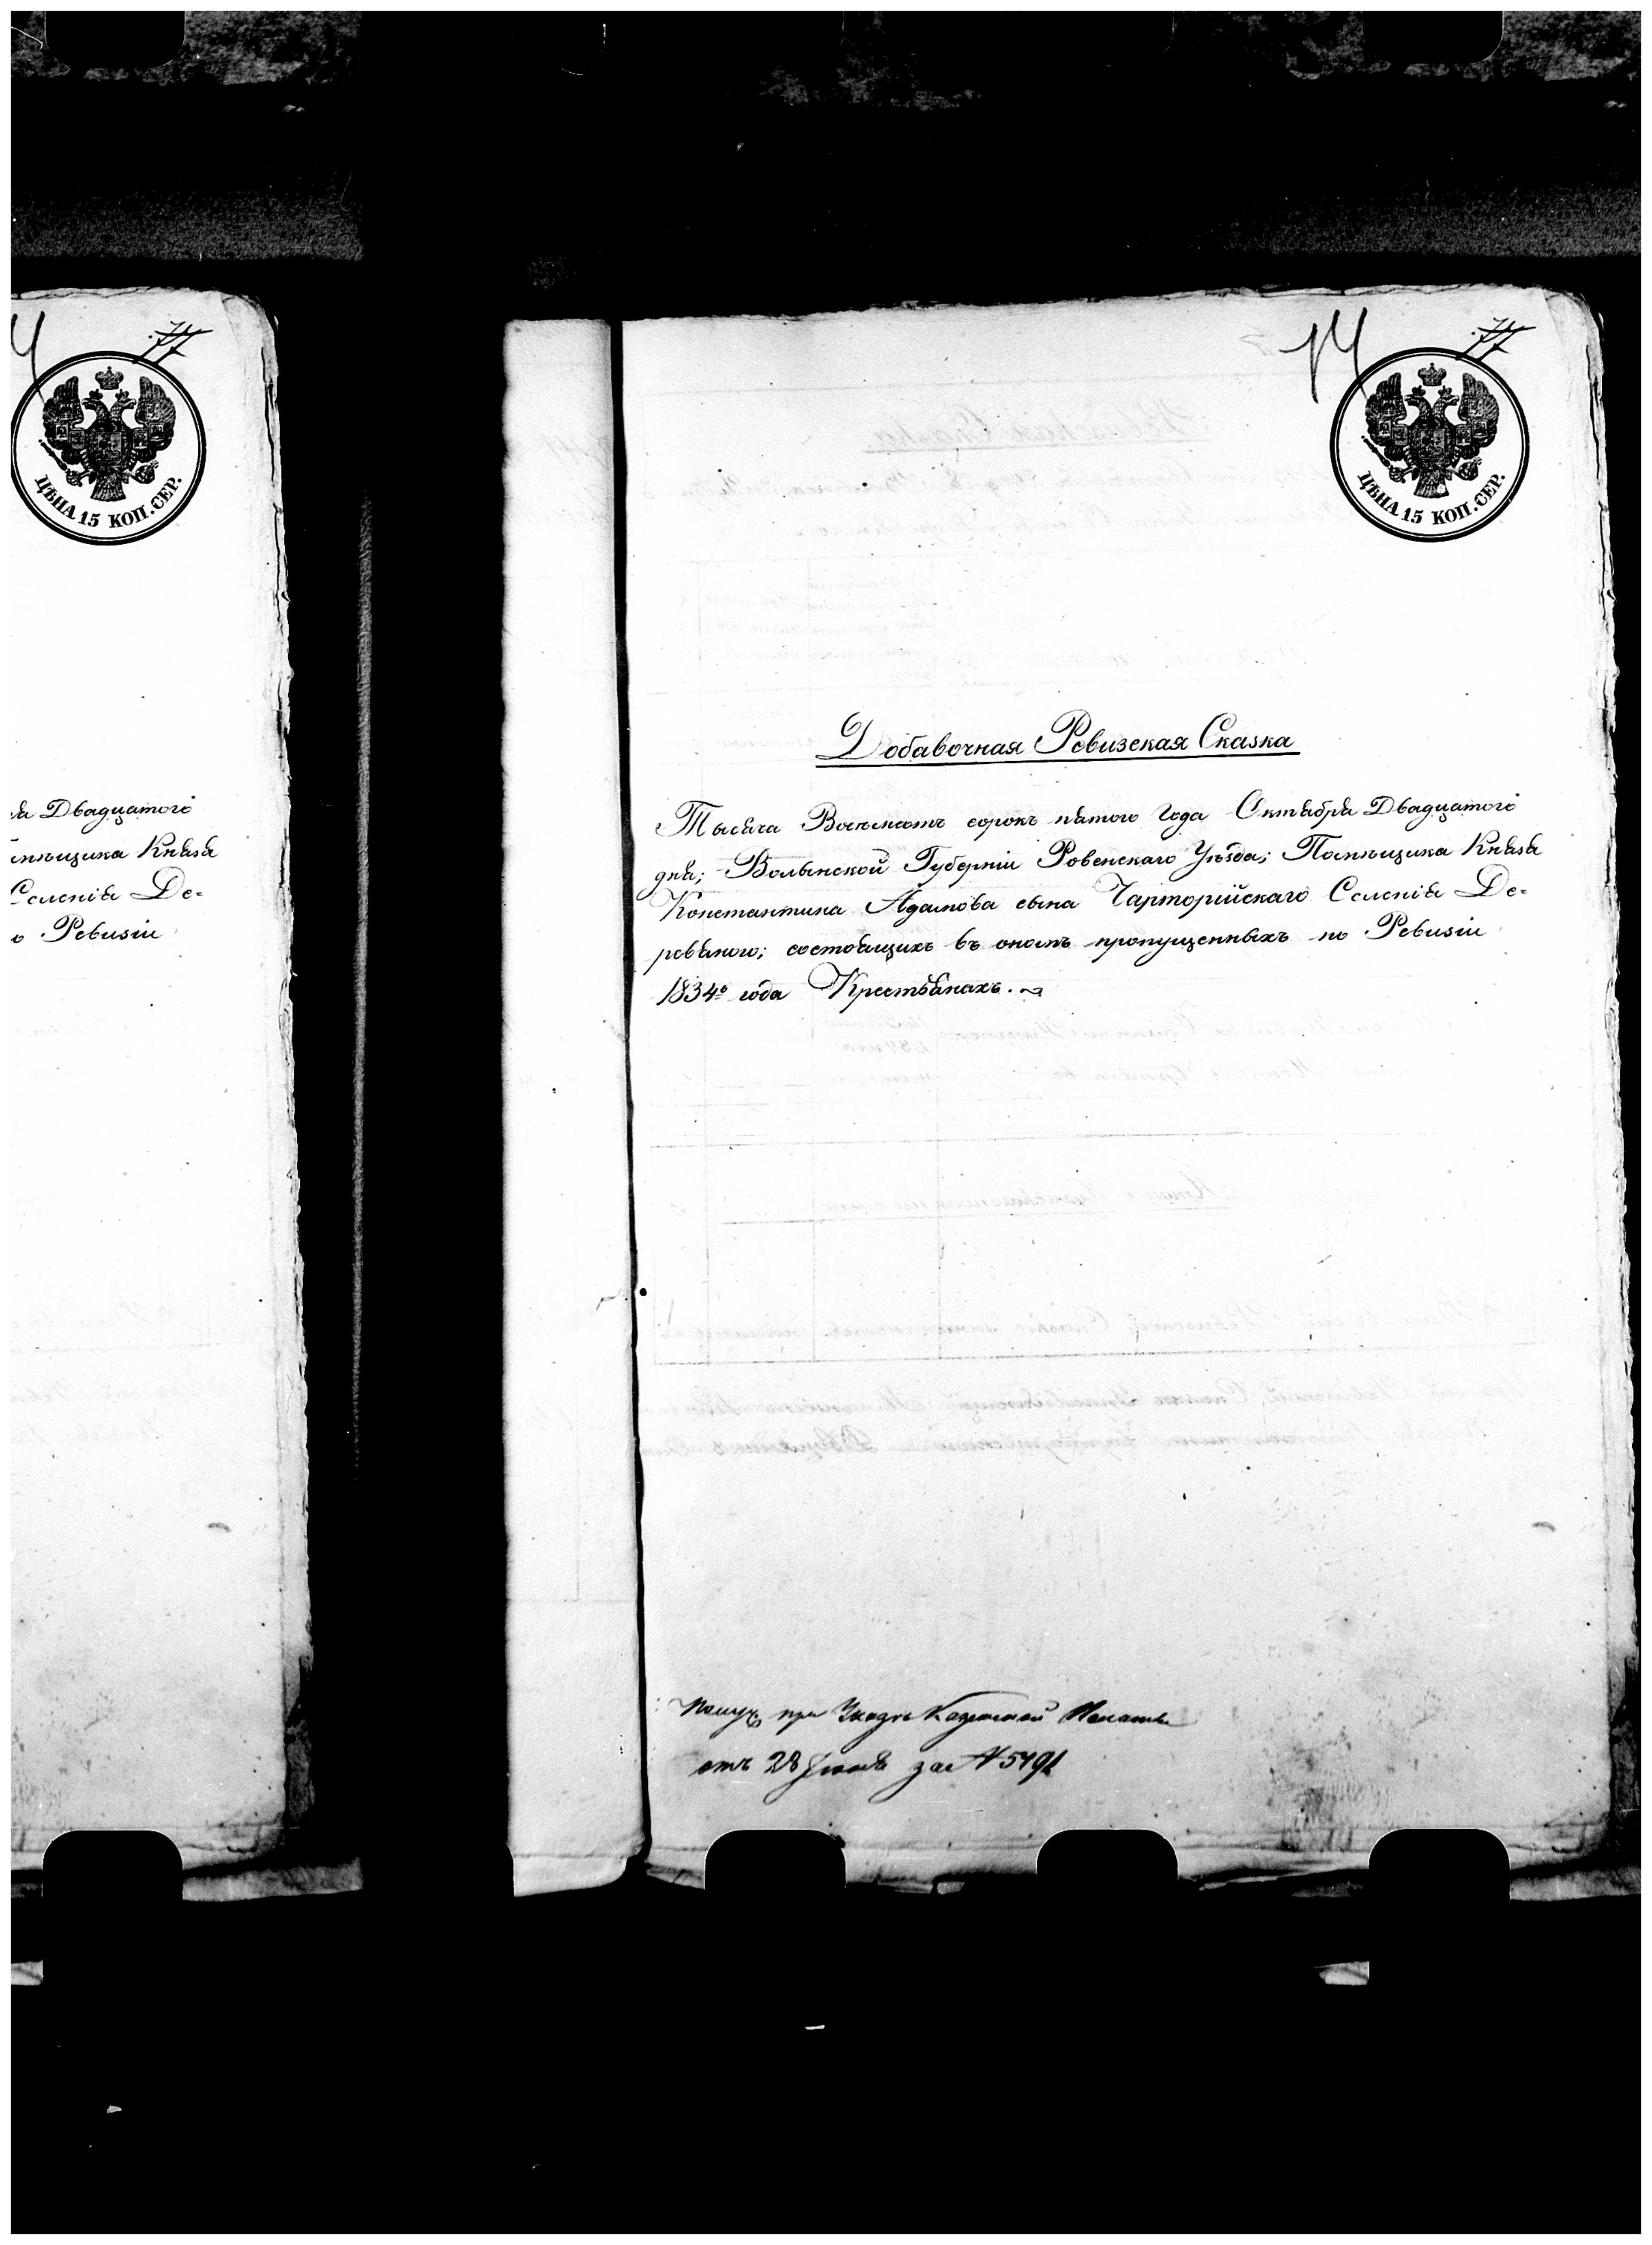 ЦѢНА 15 КОП. СЕР.
ія Двадцатого
Князя
Селенія Де-
о Ревизіи
14
77
ЦѢНА 15 КОП. СЕР.
Добавочная Ревизская Сказка
Тысяча Восемсотъ сорокъ пятого года Октября Двадцатого
дня; Волынской Губерніи Ровенскаго Уѣзда; Помѣщика Князя
Константина Адамова сына Чарторійскаго Селенія Де-
ревяного; состоящихъ въ ономъ пропущенныхъ по Ревизіи
1834го года Крестьянахъ.
Получ. при Указѣ Казенной Палаты
отъ 28 Іюня за №5491